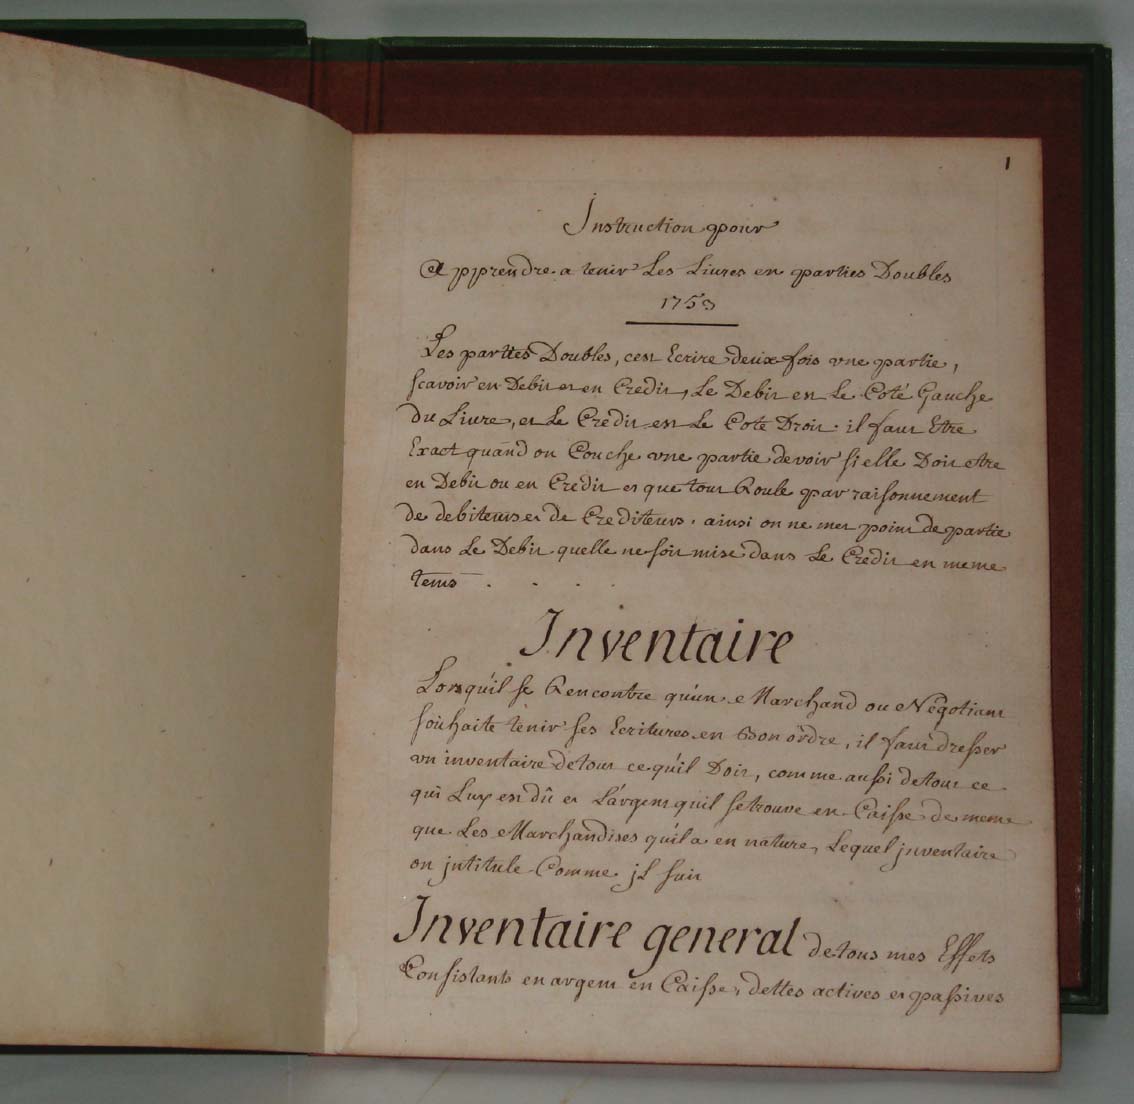 1
Instruction pour
Apprendre a tenir Les Livres en parties Doubles
1753
Les parties Doubles, cest Ecrire deux fois vne partie,
scavoir en Debit et en Credit, Le Debit est Le Coté Gauche
du Livre, et Le Credit est Le Coté Droit. il faut Etre
Exact quand on Couche vne partie de voir si elle Doit etre
en Debit ou en Credit et que tout Roule par raisonnement
de debiteurs et de Crediteurs. ainsi on ne met point de partie
dans Le Debit quelle ne soit mise dans Le Credit en meme
tems . . . .
Inventaire
Lorsqu'il se Rencontre qu'un Marchand ou Négotiant
souhaite tenir ses Ecritures en Bon ordre, il faut dresser
vn inventaire de tout ce qu'il Doit, comme aussi de tout ce
qui Luy est dû et L'argent quil se trouve en Caisse de meme
que Les Marchandises qu'il a en nature, Lequel jnventaire
on jntitule Comme jl suit
Inventaire general de tous mes Effets
Consistants en argent en Caisse, dettes actives et passives